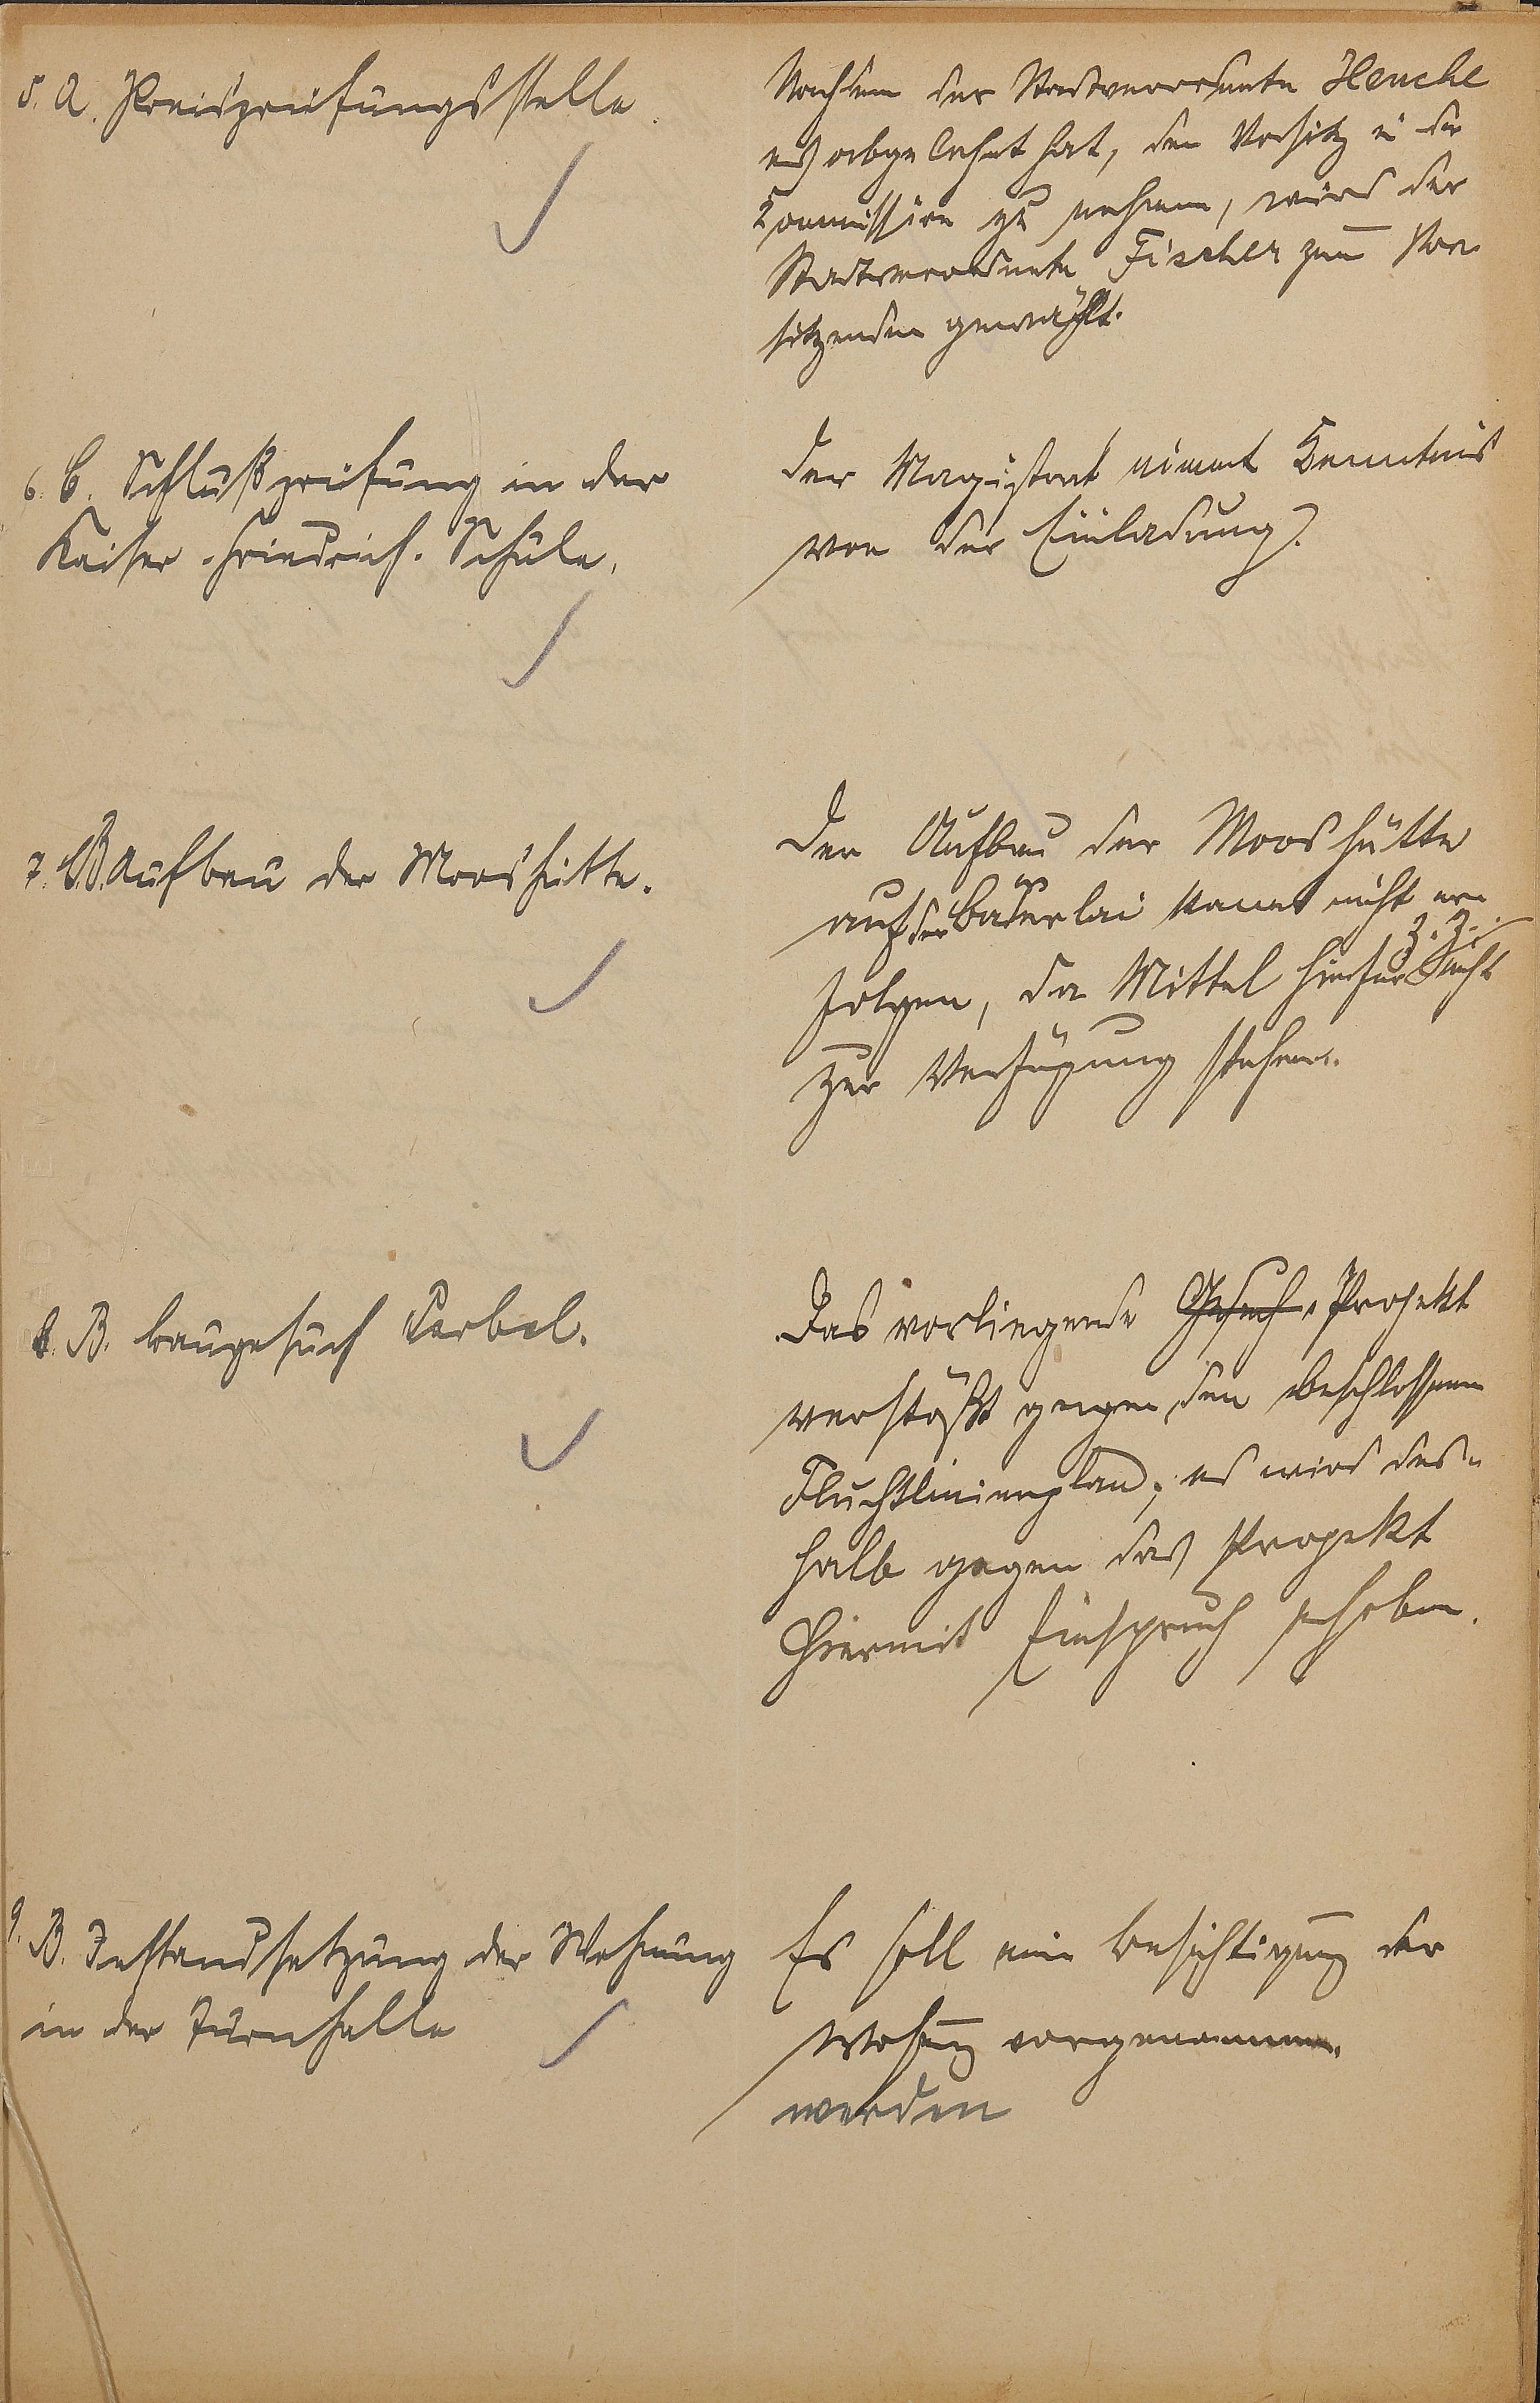 5. A. Preisprüfungsstelle.
Nachdem der Stadtverordnete Henche
es abgelehnt hat, den Vorsitz in der
Kommission zu nehmen, wird der
Stadtverordnete Fischer zum Vor-
sitzenden gewählt.
6. C. Schlußprüfung in der
Kaiser-Friedrich-Schule.
Der Magistrat nimmt Kenntnis
von der Einladung.
7. B. Aufbau der Mooshütte.
Der Aufbau der Mooshütte
auf der Bäderlei kann nicht er-
folgen, da Mittel hierfür z. Z. nicht
zur Verfügung stehen.
8. B. Baugesuch Korbel.
Das vorliegende Gesuch Projekt
verstößt gegen den beschlossenen
Fluchtlinienplan; es wird des-
halb gegen das Projekt
hiermit Einspruch erhoben.
9. B. Instandsetzung der Wohnung
in der Turnhalle
Es soll eine Besichtigung der
Wohnung vorgenommen
werden